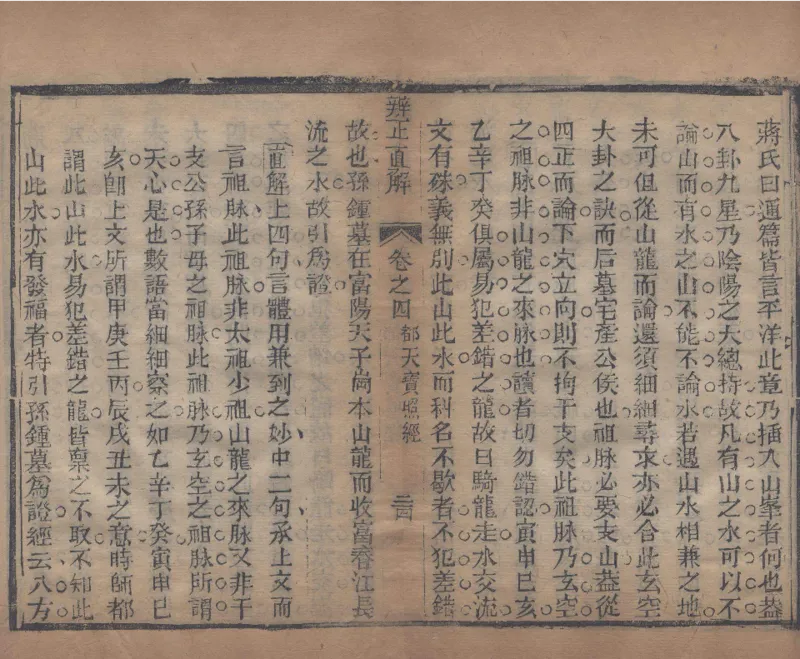 蔣氏曰通篇皆言平洋此章乃插入山峯者何也蓋
八卦九星乃陰陽之大總持故凡有山之水可以不
論山而有水之山不能不論水若遇山水相兼之地
未可但從山龍而論還須細細尋求亦必合此玄空
大卦之訣而后墓宅產公侯也祖脉必要支山蓋從
四正而論下穴立向則不拘于支矣此祖脉乃玄空
之祖脉非山龍之來脉也讀者切勿錯認寅申巳亥
乙辛丁癸俱屬易犯差錯之龍故曰騎龍走水交流
文有殊義無別此山此水而科名不歇者不犯差錯
辨正直解
卷之四
都天寶照經
三四
故也孫鍾墓在富陽天子崗本山龍而收富春江長
流之水故引爲證
直解上四句言體用兼到之妙中二句承上文而
言祖脉此祖脉非太祖少祖山龍之來脉又非干
支公孫子母之祖脉此祖脉乃玄空之祖脉所謂
天心是也數語當細細察之如乙辛丁癸寅申巳
亥卽上文所謂甲庚壬丙辰戌丑未之意時師都
謂此山此水易犯差錯之龍皆棄之不取不知此
山此水亦有發福者特引孫鍾墓爲證經云八方